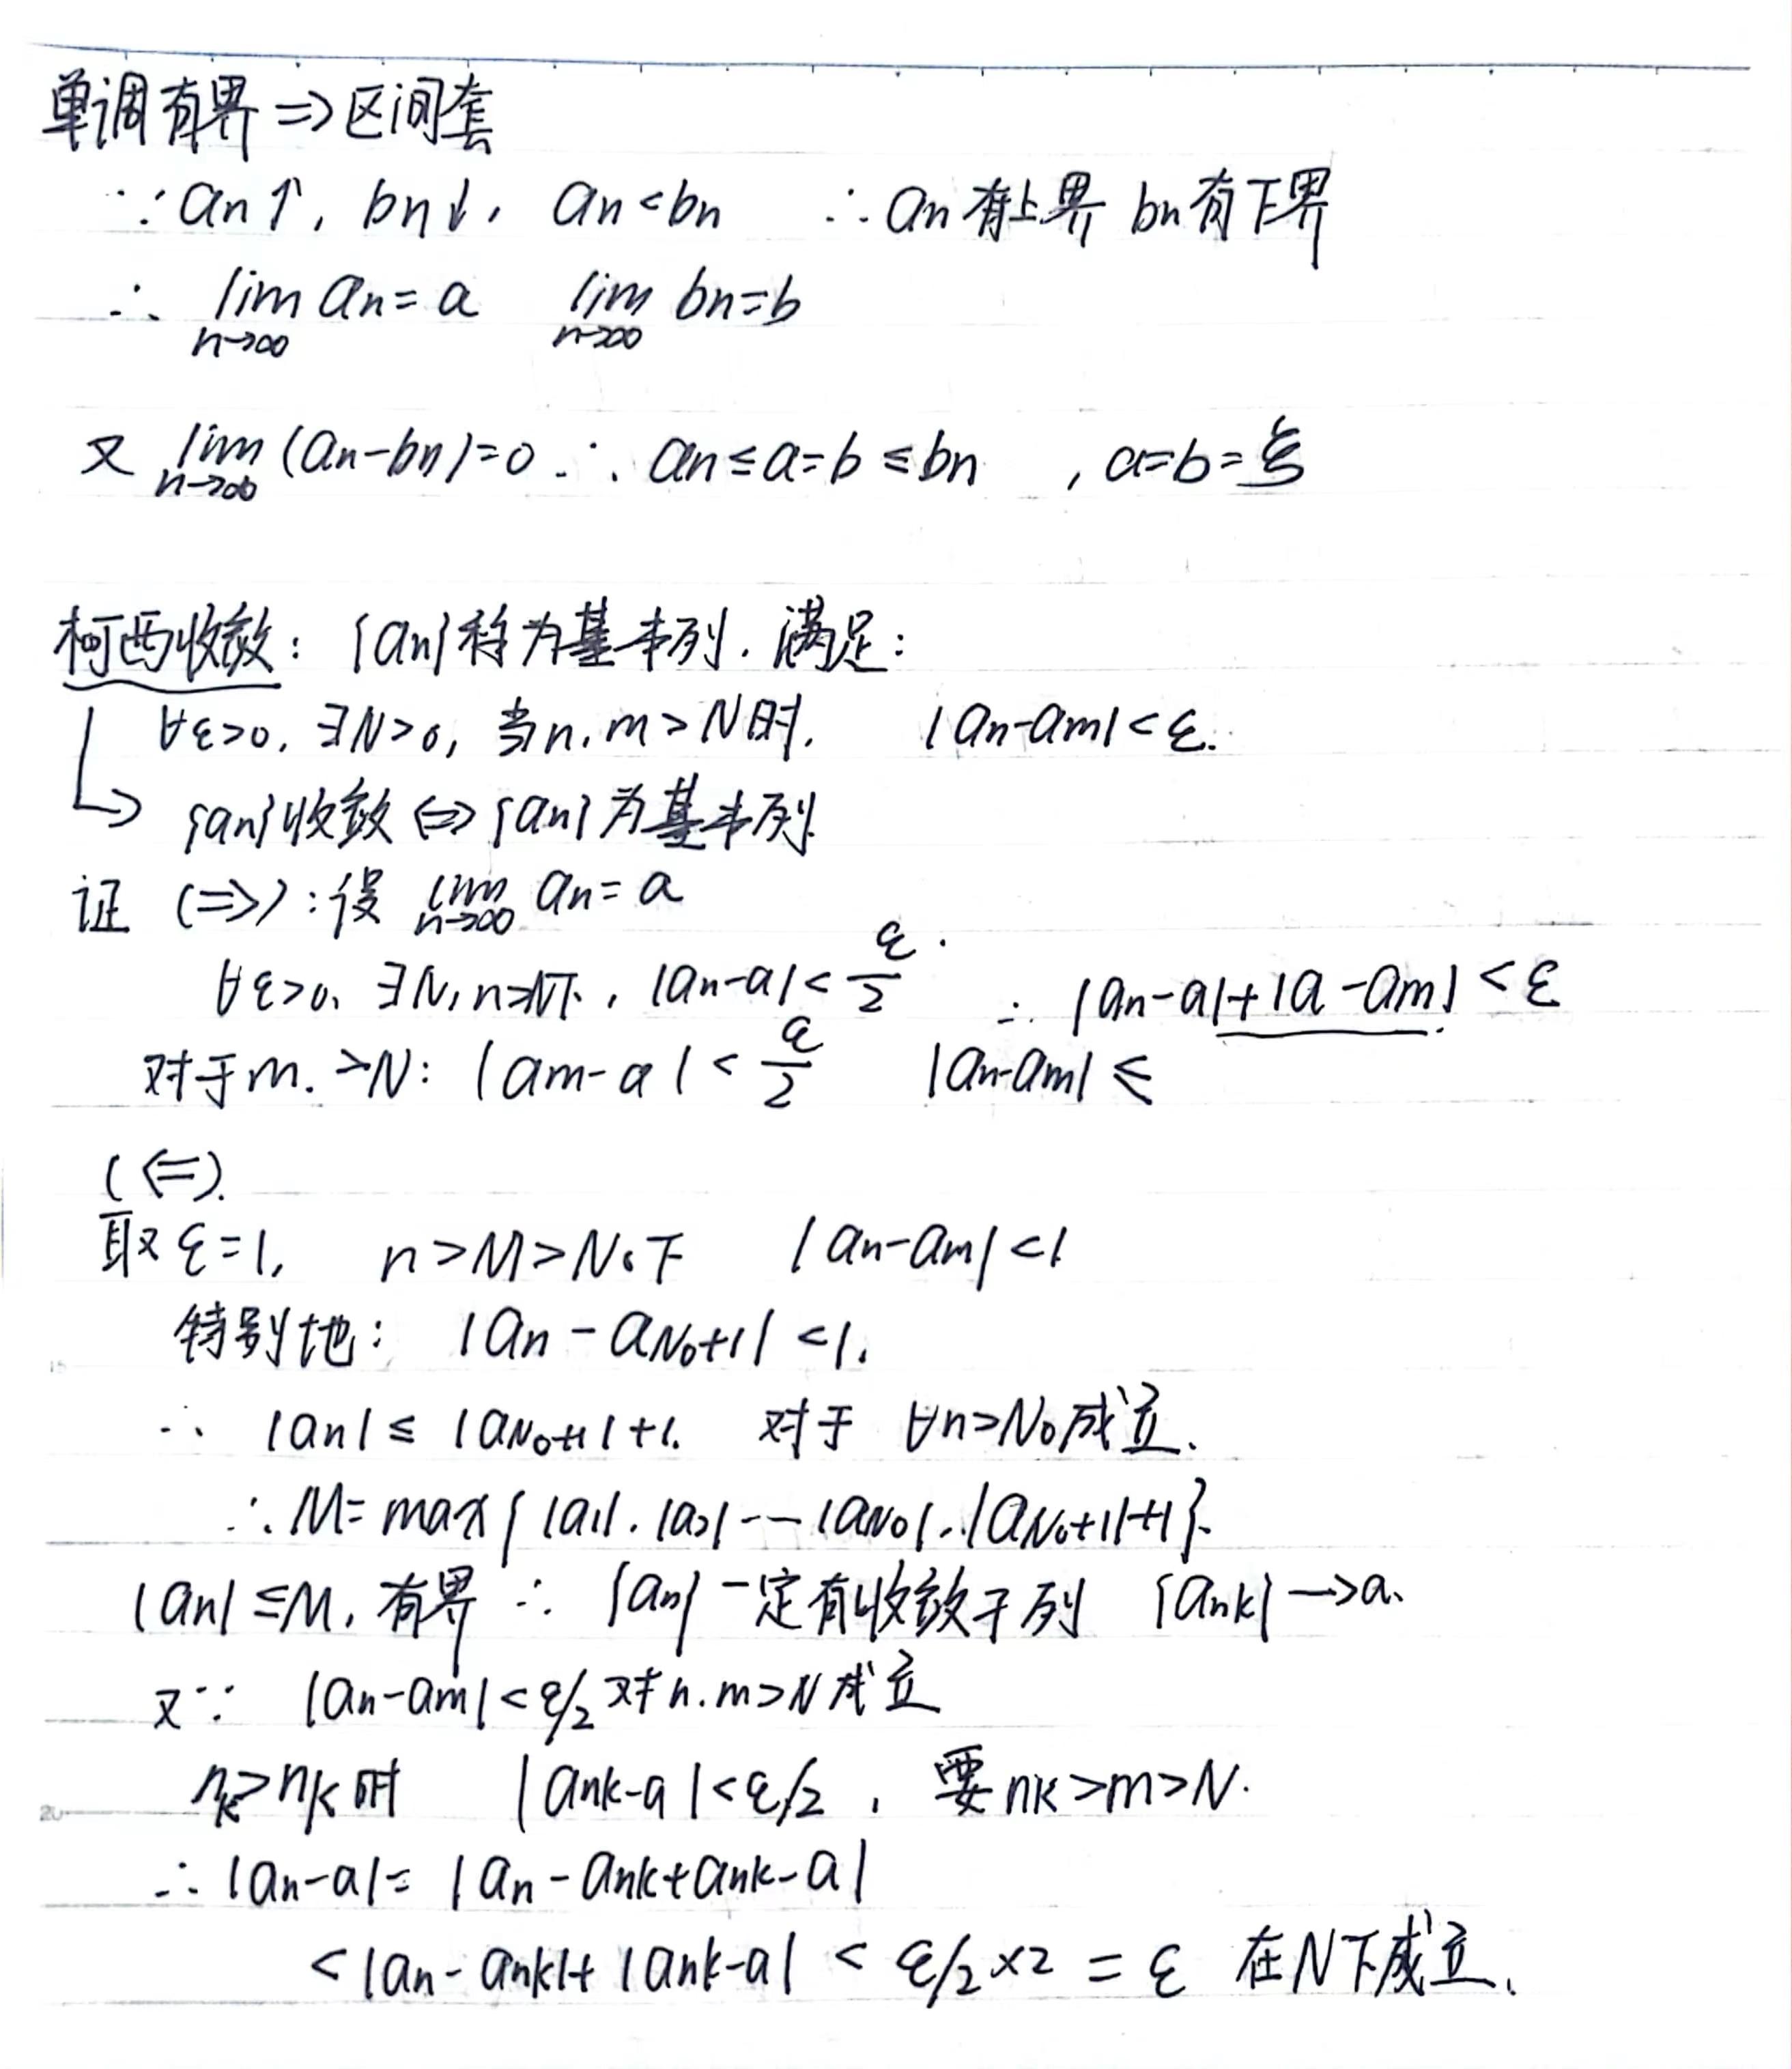 单调有界 => 区间套
∵ an↑, bn↓, an<bn ∴ an有上界 bn有下界
∴ lim n→∞ an=a lim n→∞ bn=b
又 lim n→∞ (an-bn)=0 ∴ an≤a=b≤bn , a=b=ξ
柯西收敛: {an}称为基本列. 满足:
∀ε>0, ∃N>0, 当n,m>N时, |an-am|<ε.
↳ {an}收敛 <=> {an}为基本列
证 (=>): 设 lim n→∞ an=a
∀ε>0, ∃N, n>N下, |an-a|<ε/2 ∴ |an-a|+|a-am|<ε
对于m.>N: |am-a|<ε/2 |an-am|≤
(<=).
取ε=1, n>M>N0下 |an-am|<1
特别地: |an-aN0+1|<1.
∴ |an|≤|aN0+1|+1. 对于 ∀n>N0成立.
∴ M=max{|a1|.|a2|--|aN0|,.|aN0+1|+1}.
|an|≤M, 有界 ∴ {an}一定有收敛子列 {ank}→a.
又∵ |an-am|<ε/2 对于n.m>N成立
nk>nK时 |ank-a|<ε/2 , 要nk>m>N.
∴ |an-a|= |an-ank+ank-a|
<|an-ank|+|ank-a| < ε/2×2 = ε 在N下成立.